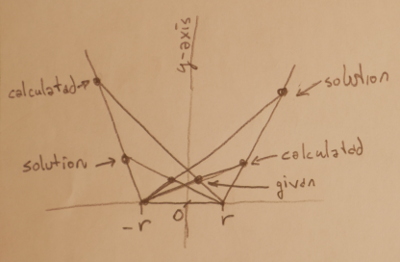 y-axis
calculated
solution
solution
calculated
given
-r
0
r